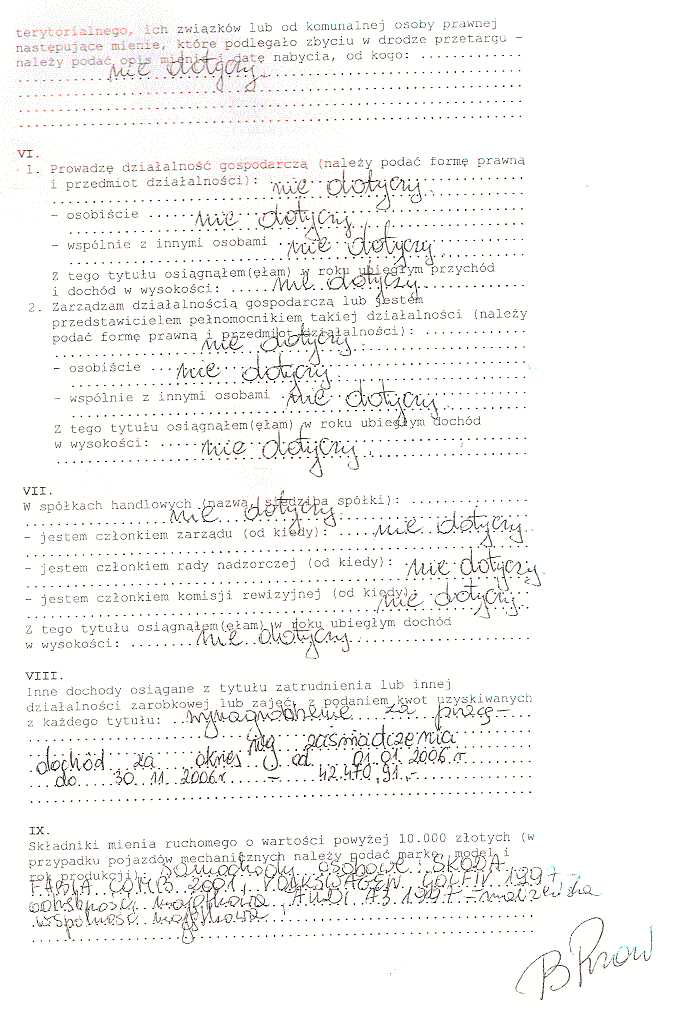 terytorialnego, ich związków lub od komunalnej osoby prawnej
następujące mienie, które podlegało zbyciu w drodze przetargu -
należy podać opis mienia i datę nabycia, od kogo: .............
nie dotyczy
VI.
1. Prowadzę działalność gospodarczą (należy podać formę prawną
i przedmiot działalności): nie dotyczy
- osobiście ...... nie dotyczy
- wspólnie z innymi osobami nie dotyczy
Z tego tytułu osiągnąłem(ęłam) w roku ubiegłym przychód
i dochód w wysokości: ..... nie dotyczy
2. Zarządzam działalnością gospodarczą lub jestem
przedstawicielem pełnomocnikiem takiej działalności (należy
podać formę prawną i przedmiot działalności): .............
nie dotyczy
- osobiście ... nie dotyczy
- wspólnie z innymi osobami nie dotyczy
Z tego tytułu osiągnąłem(ęłam) w roku ubiegłym dochód
w wysokości: ..... nie dotyczy
VII.
W spółkach handlowych (nazwa, siedziba spółki): ...............
nie dotyczy
- jestem członkiem zarządu (od kiedy): .... nie dotyczy
- jestem członkiem rady nadzorczej (od kiedy): nie dotyczy
- jestem członkiem komisji rewizyjnej (od kiedy): nie dotyczy
Z tego tytułu osiągnąłem(ęłam) w roku ubiegłym dochód
w wysokości: ....... nie dotyczy
VIII.
Inne dochody osiągane z tytułu zatrudnienia lub innej
działalności zarobkowej lub zajęć, z podaniem kwot uzyskiwanych
z każdego tytułu: ..wynagrodzenie za pracę -
wg zaświadczenia
dochód za okres od 01.01.2006 r
do 30.11.2006 r - 42.470,91,-
IX.
Składniki mienia ruchomego o wartości powyżej 10.000 złotych (w
przypadku pojazdów mechanicznych należy podać markę, model i
rok produkcji): samochody osobowe: SKODA
FABIA COMBI 2001, VOLKSWAGEN GOLF IV 1997 -
odrębność majątkowa AUDI A3 1997 - małżeńska
wspólność majątkowa